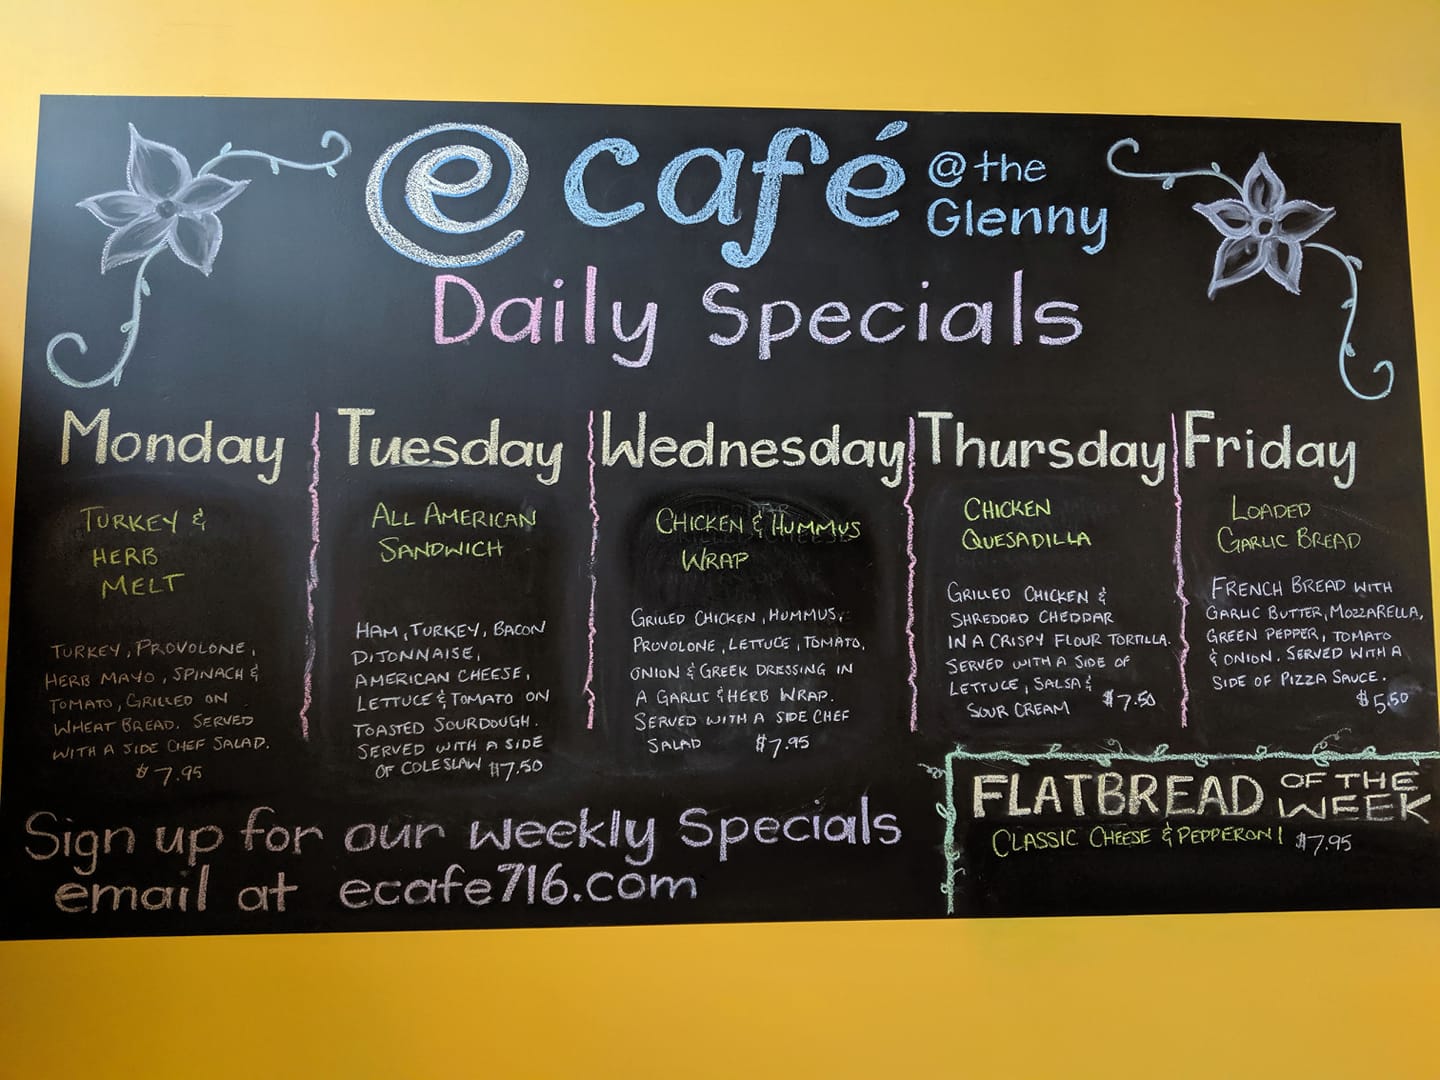 e café @ the
Glenny
Daily Specials
Monday
TURKEY &
HERB
MELT
TURKEY, PROVOLONE,
HERB MAYO, SPINACH &
TOMATO, GRILLED ON
WHEAT BREAD. SERVED
WITH A SIDE CHEF SALAD.
$7.95
Tuesday
ALL AMERICAN
SANDWICH
HAM, TURKEY, BACON
DIJONNAISE,
AMERICAN CHEESE,
LETTUCE & TOMATO ON
TOASTED SOURDOUGH.
SERVED WITH A SIDE
OF COLESLAW $7.50
Wednesday
CHICKEN & HUMMUS
WRAP
GRILLED CHICKEN, HUMMUS,
PROVOLONE, LETTUCE, TOMATO,
ONION & GREEK DRESSING IN
A GARLIC & HERB WRAP.
SERVED WITH A SIDE CHEF
SALAD $7.95
Thursday
CHICKEN
QUESADILLA
GRILLED CHICKEN &
SHREDDED CHEDDAR
IN A CRISPY FLOUR TORTILLA.
SERVED WITH A SIDE OF
LETTUCE, SALSA &
SOUR CREAM $7.50
Friday
LOADED
GARLIC BREAD
FRENCH BREAD WITH
GARLIC BUTTER, MOZZARELLA,
GREEN PEPPER, TOMATO
& ONION. SERVED WITH A
SIDE OF PIZZA SAUCE.
$5.50
Sign up for our weekly Specials
email at ecafe716.com
FLATBREAD OF THE
WEEK
CLASSIC CHEESE & PEPPERONI $7.95